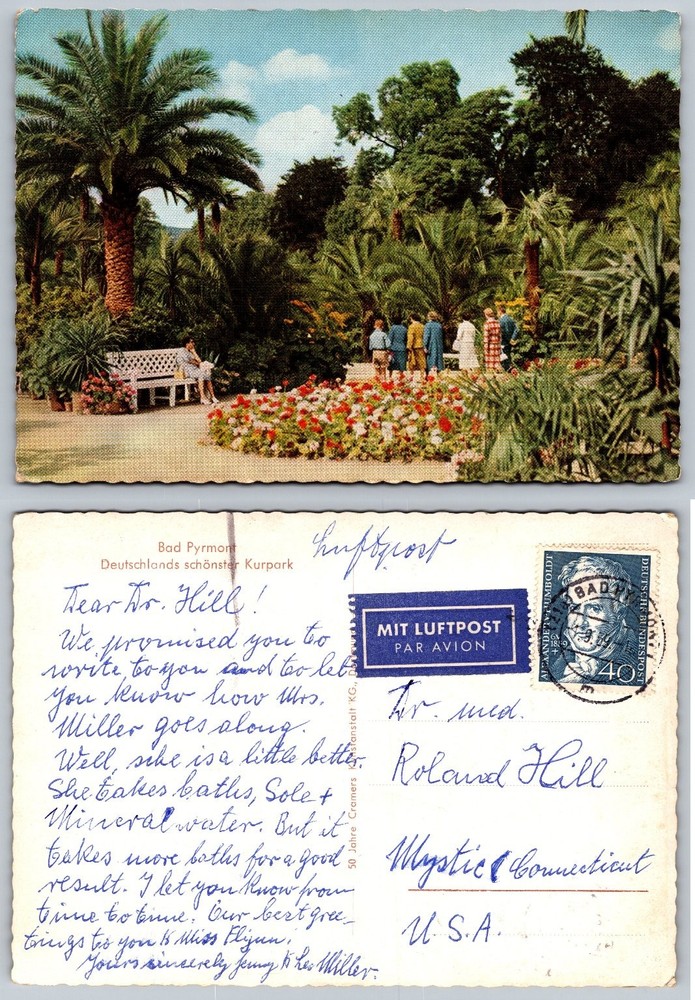 Bad Pyrmont
Deutschlands schönster Kurpark
Luftpost
Dear Dr. Hill!
We promised you to
write to you and to let
you know how Mrs.
Miller goes along.
Well, she is a little better.
She takes baths, Sole +
Mineral water. But it
takes more baths for a good
result. I let you know from
time to time. Our best gree-
tings to you & Miss Flynn!
Yours sincerely Jenny & Leo Miller.
50 Jahre Cramers Kunstanstalt KG,
MIT LUFTPOST
PAR AVION
ALEXANDER V. HUMBOLDT
DEUTSCHE BUNDESPOST
40
BAD PYRMONT
Dr. med.
Roland Hill
Mystic, Connecticut
U.S.A.